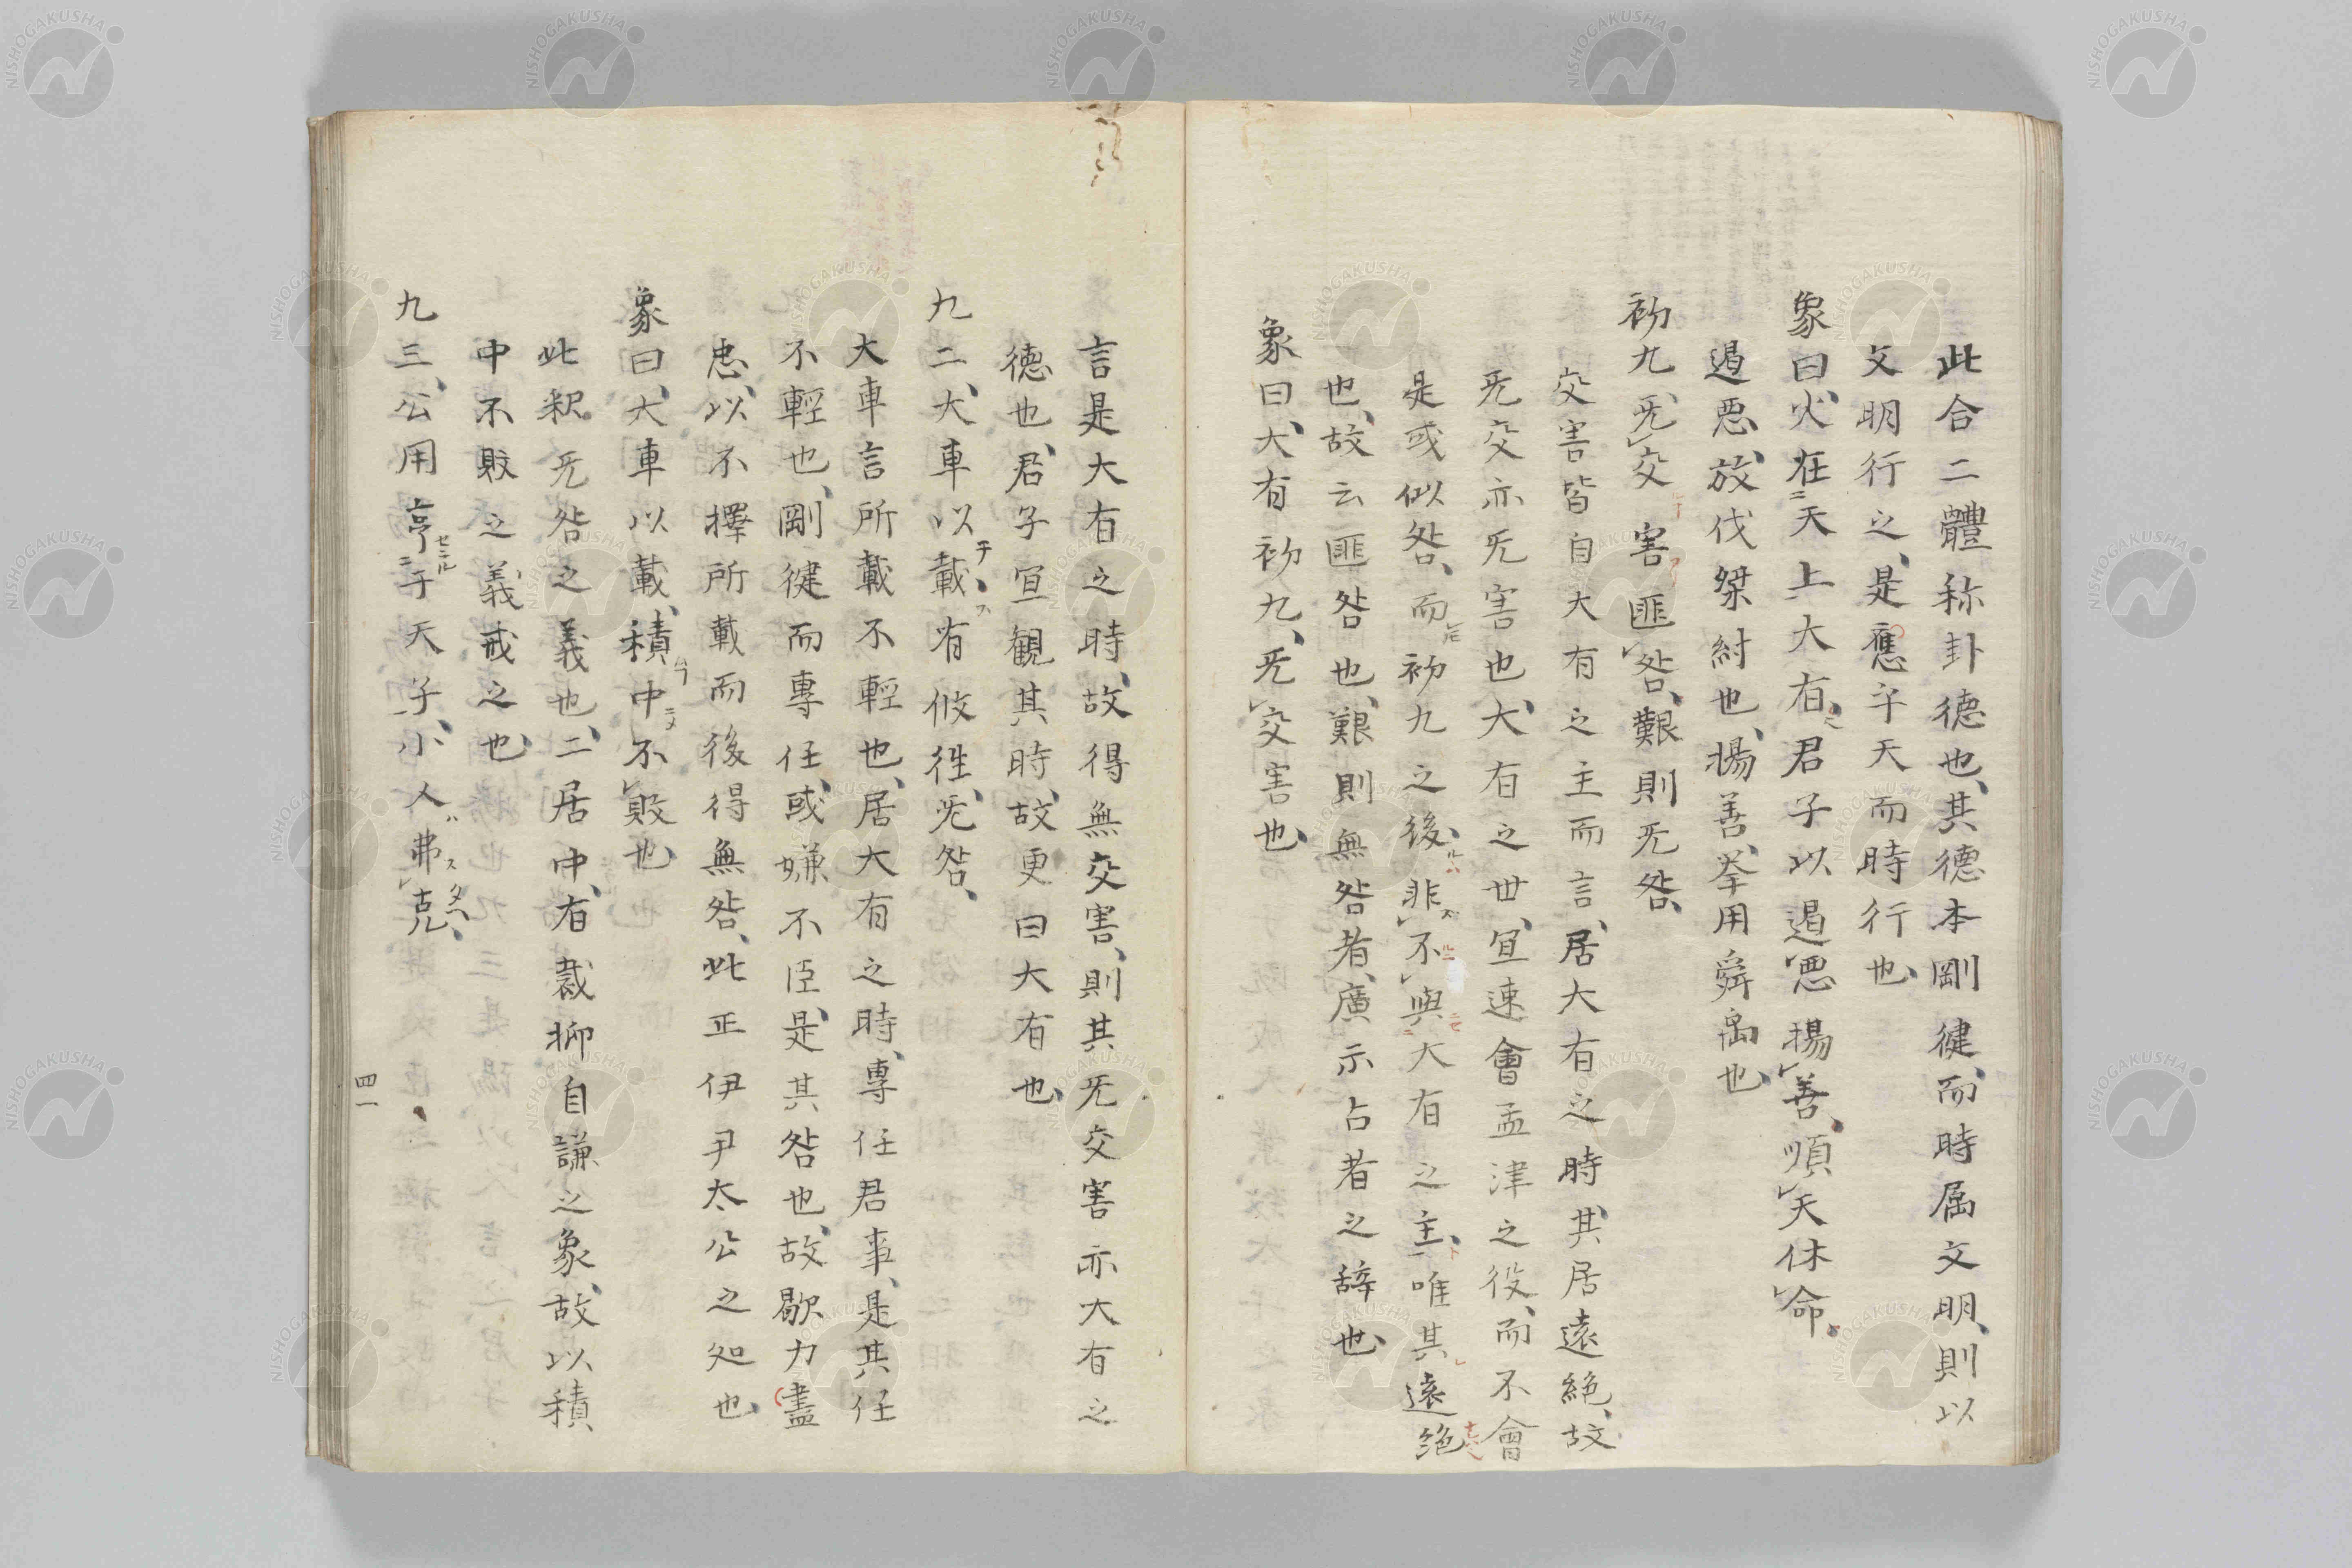 此合二體称卦德也、其德本剛健、而時屬文明、則以
文明行之、是應乎天而時行也、
象曰、火在二天上大有、君子以遏惡揚善、順天休命、
遏惡、放伐桀紂也、揚善、挙用舜禹也、
初九、旡交害匪咎、艱則旡咎、
交害皆自大有之主而言、居大有之時、其居遠絶、故
旡交亦旡害也、大有之世、宜速會孟津之役、而不會
是或似咎、而初九之後、非不與大有之主、唯其遠絶
也、故云匪咎也、艱則無咎者、廣示占者之辞也、
象曰、大有初九、旡交害也、
言是大有之時、故得無交害、則其旡交害亦大有之
德也、君子宜観其時、故更曰大有也、
九二、大車以載、有攸往、旡咎、
大車言所載不輕也、居大有之時、專任君事、是其任
不輕也、剛健而專任、或嫌不臣、是其咎也、故歇力盡
忠、以不擇所載而後得無咎、此正伊尹太公之処也、
象曰、大車以載、積中不敗也、
此釈旡咎之義也、二居中、有裁抑自謙之象、故以積
中不敗之義戒之也、
九三、公用亨二于天子一、小人弗克、
四一
NISHOGAKUSHA